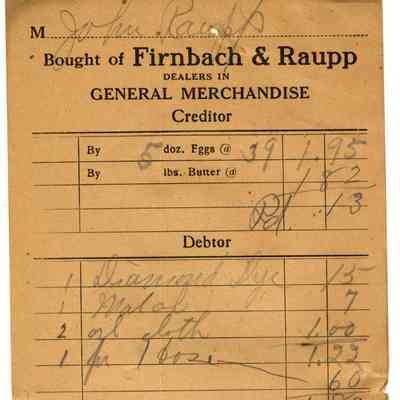 M John Raupp
Bought of Firnbach & Raupp
DEALERS IN
GENERAL MERCHANDISE
Creditor
By 5 doz. Eggs @ 39 1.95
By lbs. Butter @ 1 82
Pd. .13
Debtor
1 Diamond Dye 15
1 7
2 oil cloth 1.00
1 pr Hose 1.23
60